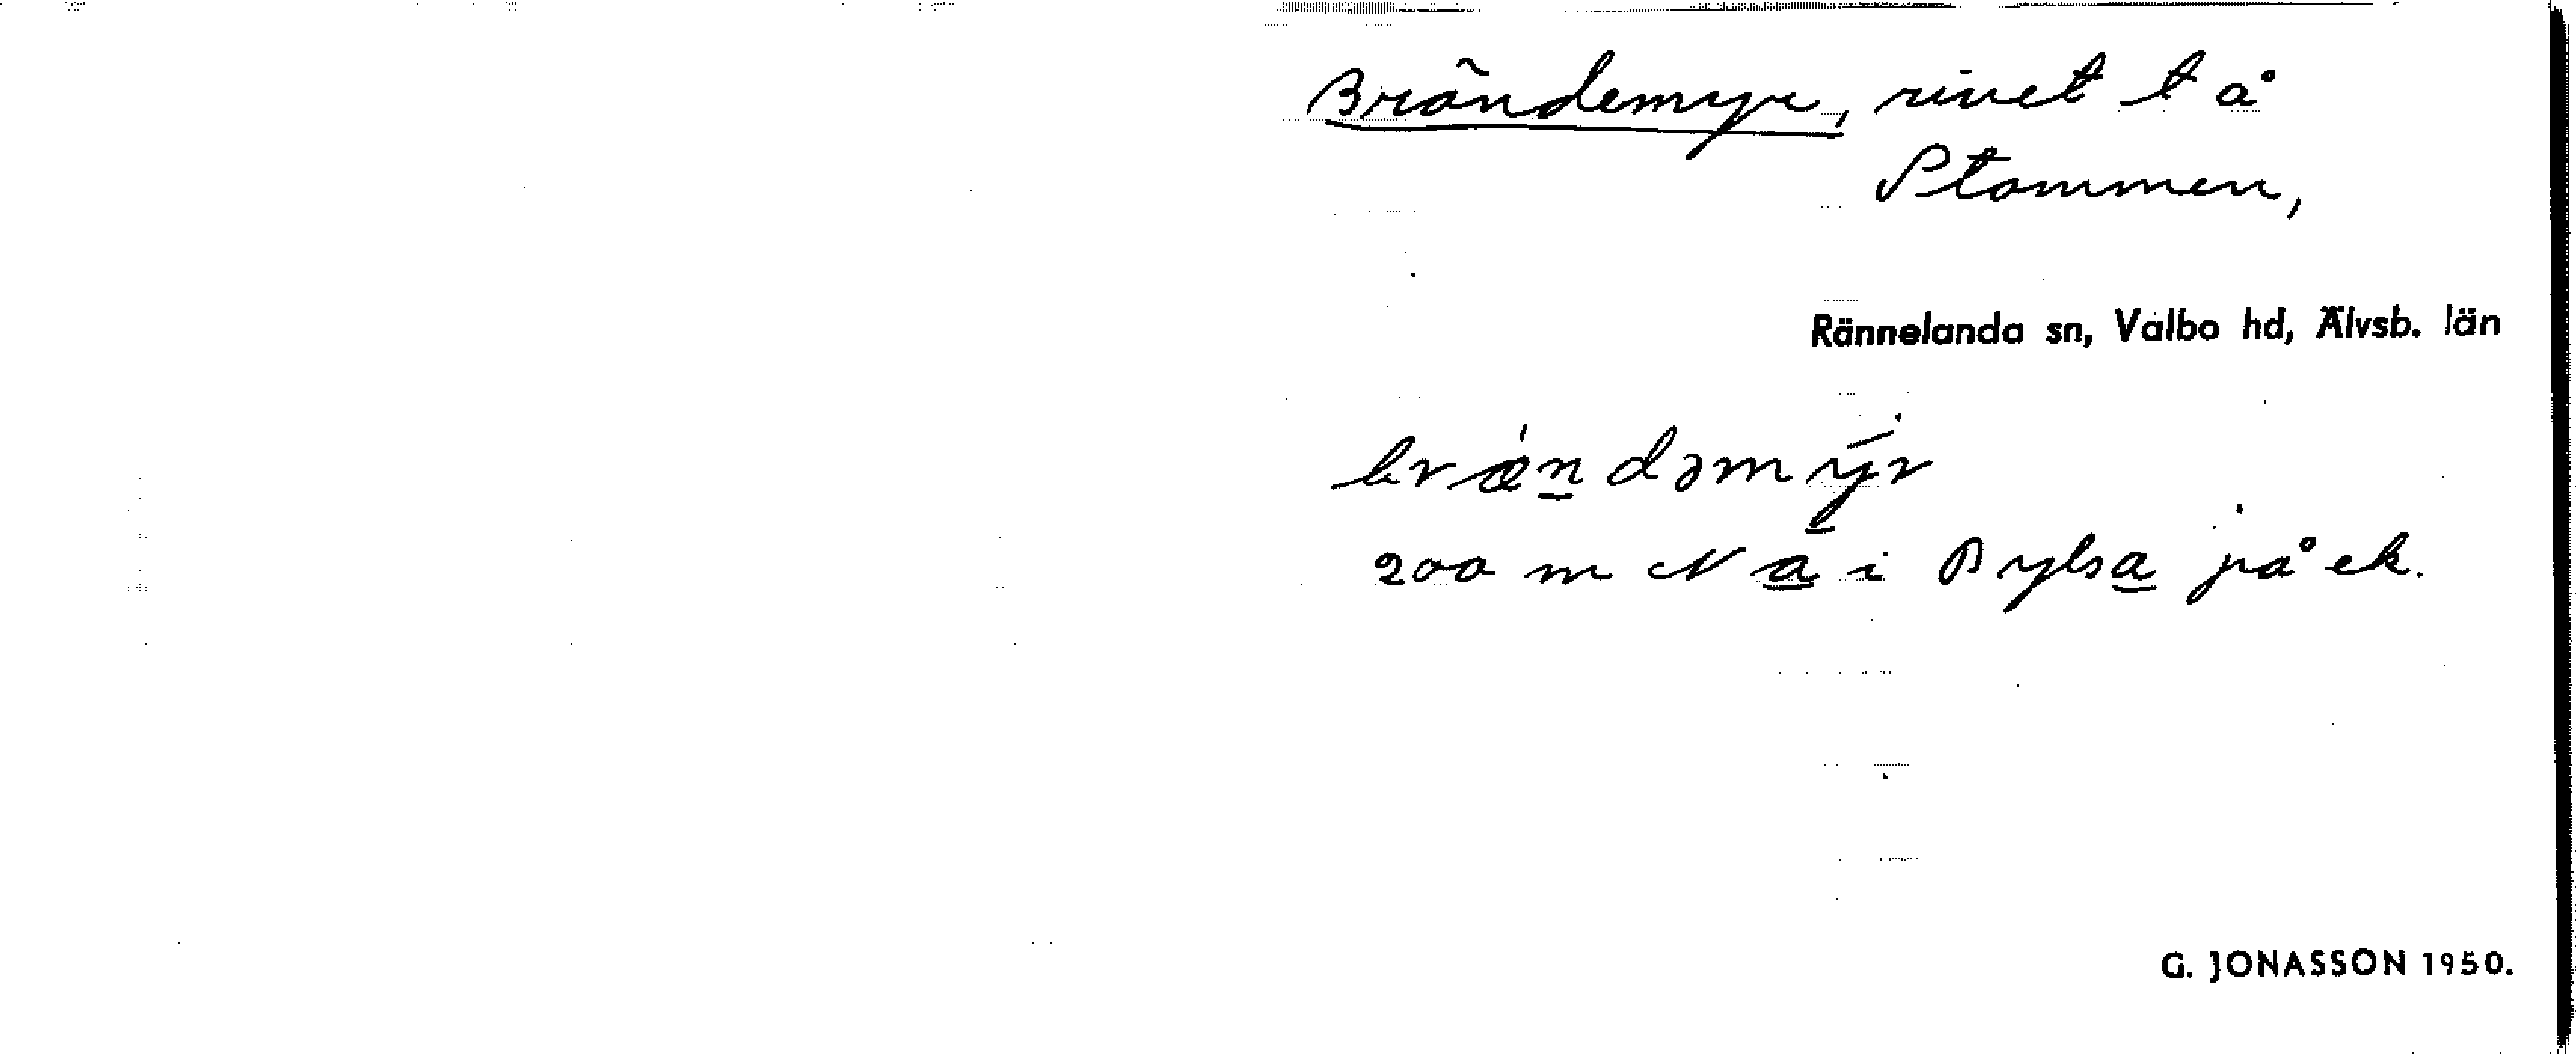 Brändemyr, rivet t å
Stommen,
Rännelanda sn, Valbo hd, Älvsb. län
brændəmyr
200 m N a i på ek.
G. JONASSON 1950.